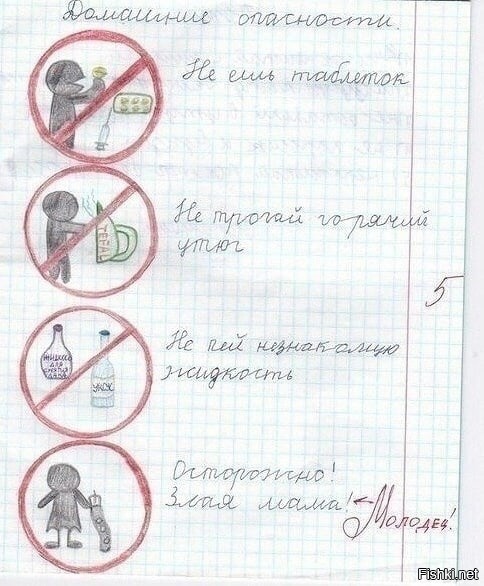 Домашние опасности.
Не ешь таблеток
Не трогай горячий
утюг
TEFAL
5
Не пей незнакомую
жидкость
жидкость
для
снятия
лака
уксус
Осторожно!
Злая мама!
Молодец!
Fishki.net